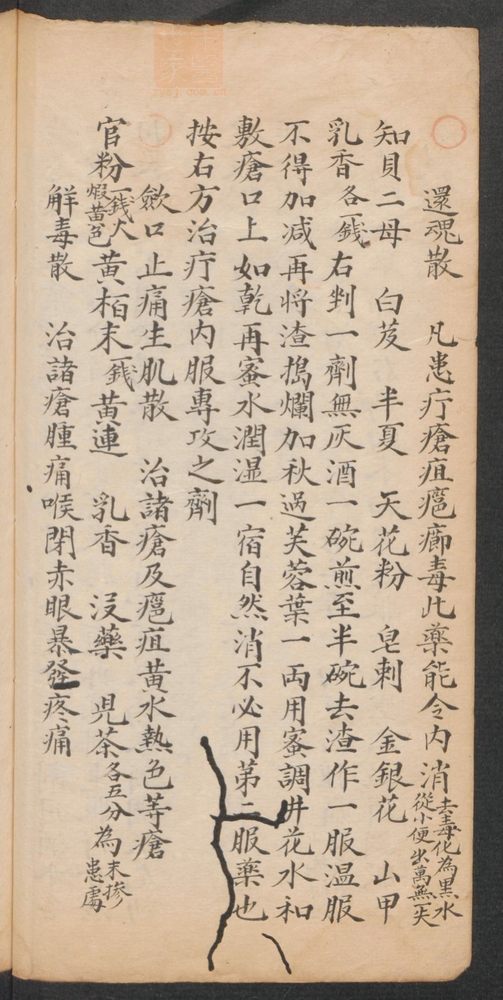 還魂散　凡患疔瘡疽瘟癤毒此藥能令內消去毒化為黑水從小便出萬無一失
知貝二母　白芨　半夏　天花粉　皂刺　金銀花　山甲
乳香各一錢右剉一劑無灰酒一碗煎至半碗去渣作一服温服
不得加减再将渣搗爛加秋過芙蓉葉一両用蜜調井花水和
敷瘡口上如乾再蜜水潤湿一宿自然消不必用第二服藥也
按右方治疔瘡内服專攻之劑
歛口止痛生肌散　治諸瘡及瘟疽黄水熱色等瘡
官粉一錢火煅黄色黄栢末一錢黄連　乳香　没藥　児茶各五分為末掺患處
解毒散　治諸瘡腫痛喉閉赤眼暴發疼痛